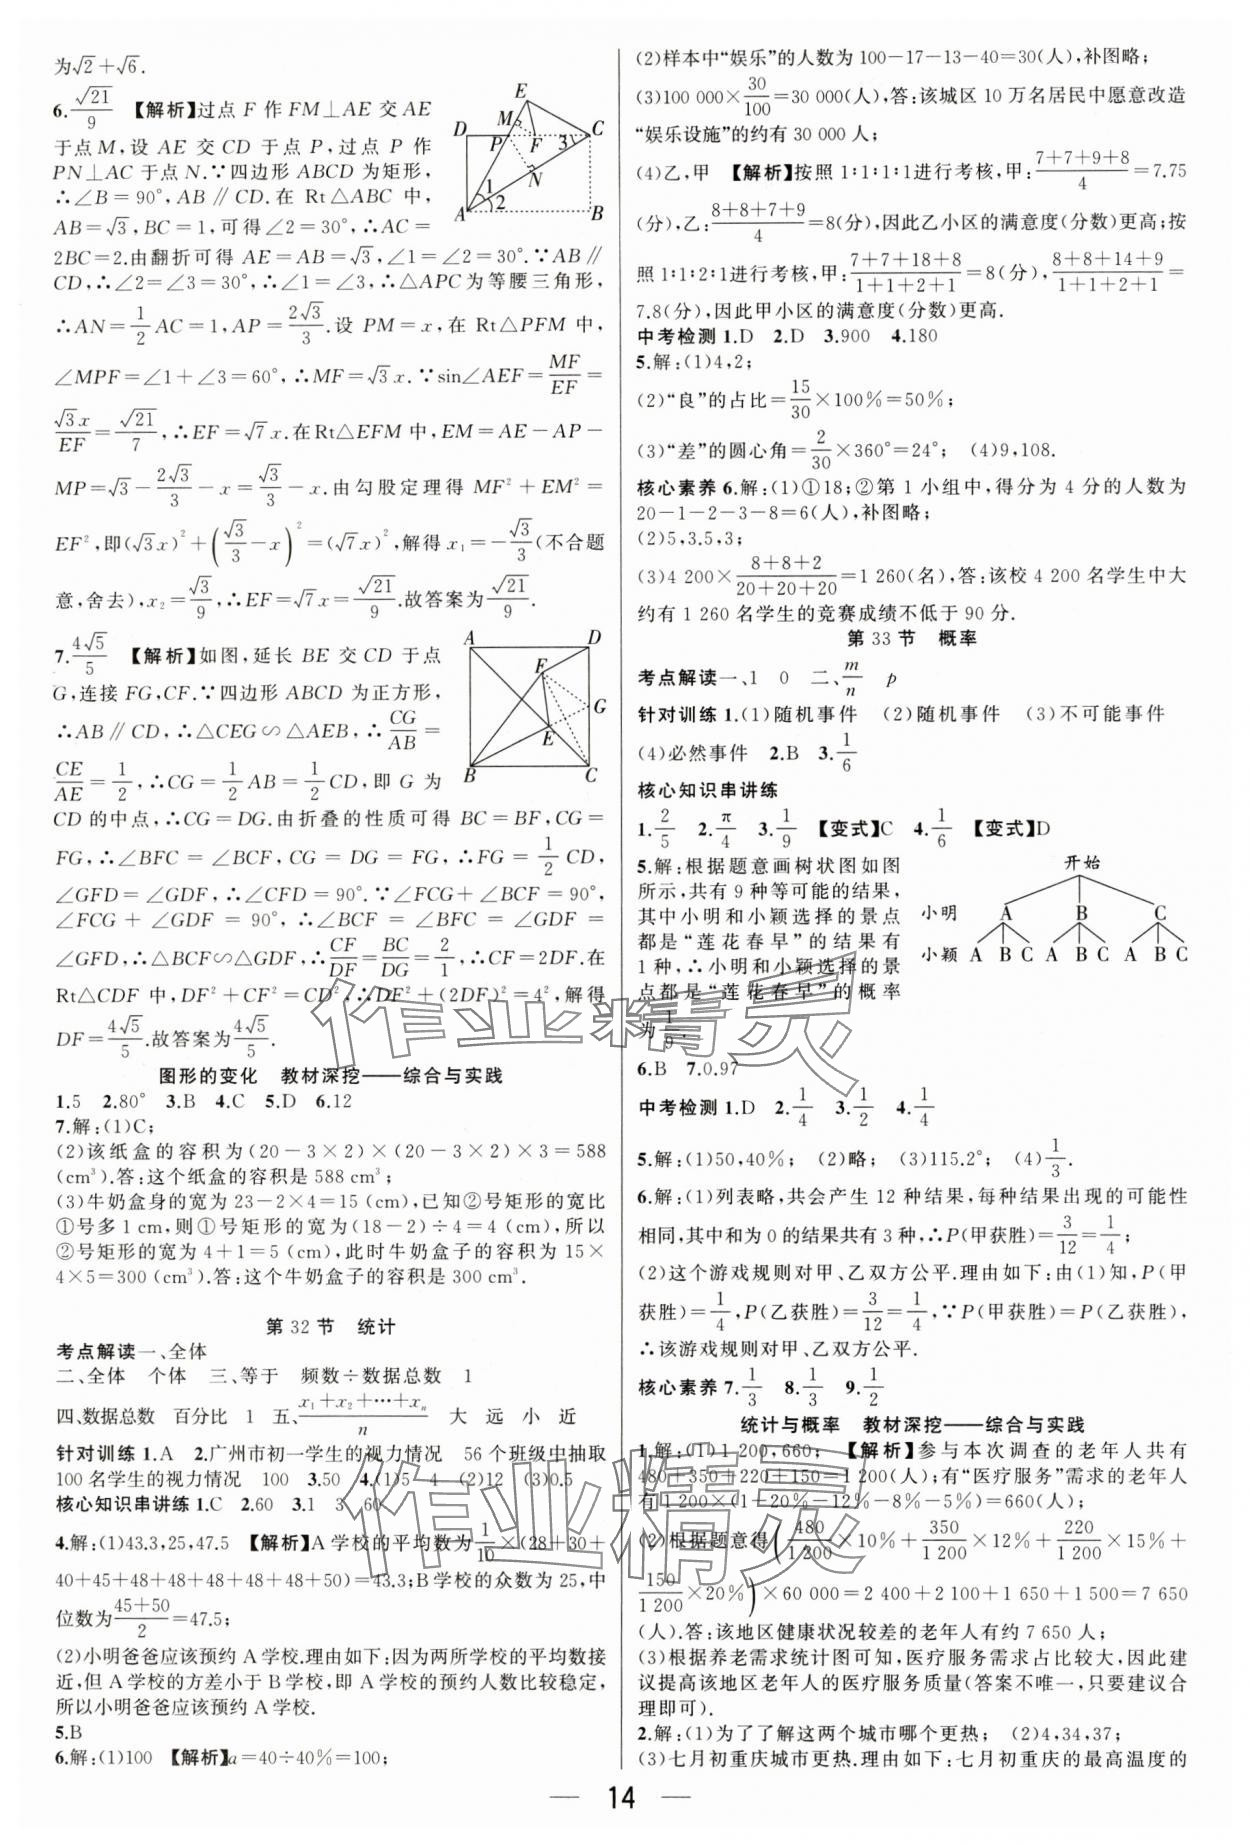 为√2+√6.
6.√21/9 【解析】过点 F 作 FM⊥AE 交 AE
于点M,设 AE 交 CD 于点 P,过点 P 作
PN⊥AC 于点 N.∵四边形 ABCD 为矩形,
∴∠B=90°,AB∥CD.在 Rt△ABC 中,
AB=√3,BC=1,可得∠2=30°,∴AC=
2BC=2.由翻折可得 AE=AB=√3,∠1=∠2=30°.∵AB∥
CD,∴∠2=∠3=30°,∴∠1=∠3,∴△APC为等腰三角形,
∴AN=1/2 AC=1,AP=2√3/3.设 PM=x,在 Rt△PFM 中,
∠MPF=∠1+∠3=60°,∴MF=√3x.∵sin∠AEF=MF/EF=
√3x/EF=√21/7,∴EF=√7x.在Rt△EFM 中,EM=AE-AP-
MP=√3-2√3/3-x=√3/3-x.由勾股定理得 MF²+EM²=
EF²,即(√3x)²+(√3/3-x)²=(√7x)²,解得x₁=-√3/3(不合题
意,舍去),x₂=√3/9,∴EF=√7x=√21/9.故答案为√21/9.
E
M
D P F 3 C
N
1
A 2 B
7.4√5/5 【解析】如图,延长 BE 交 CD 于点
G,连接 FG,CF.∵四边形 ABCD 为正方形,
∴AB∥CD,∴△CEG∽△AEB,∴CG/AB=
CE/AE=1/2,∴CG=1/2AB=1/2CD,即 G 为
CD 的中点,∴CG=DG.由折叠的性质可得 BC=BF,CG=
FG,∴∠BFC=∠BCF,CG=DG=FG,∴FG=1/2CD,
∠GFD=∠GDF,∴∠CFD=90°.∵∠FCG+∠BCF=90°,
∠FCG+∠GDF=90°,∴∠BCF=∠BFC=∠GDF=
∠GFD,∴△BCF∽△GDF,∴CF/DF=BC/DG=2/1,∴CF=2DF.在
Rt△CDF 中,DF²+CF²=CD²,∴DF²+(2DF)²=4²,解得
DF=4√5/5.故答案为4√5/5.
A D
F
G
E
B C
图形的变化 教材深挖——综合与实践
1.5 2.80° 3.B 4.C 5.D 6.12
7.解:(1)C;
(2)该纸盒的容积为(20-3×2)×(20-3×2)×3=588
(cm³).答:这个纸盒的容积是 588 cm³;
(3)牛奶盒身的宽为 23-2×4=15(cm),已知②号矩形的宽比
①号多1 cm,则①号矩形的宽为(18-2)÷4=4(cm),所以
②号矩形的宽为 4+1=5(cm),此时牛奶盒子的容积为 15×
4×5=300(cm³).答:这个牛奶盒子的容积是 300 cm³.
第 32 节 统计
考点解读一、全体
二、全体 个体 三、等于 频数÷数据总数 1
四、数据总数 百分比 1 五、x₁+x₂+…+xₙ/n 大 远 小 近
针对训练 1.A 2.广州市初一学生的视力情况 56 个班级中抽取
100 名学生的视力情况 100 3.50 4.(1)5 4 (2)12 (3)0.5
核心知识串讲练 1.C 2.60 3.1 3 60
4.解:(1)43.3,25,47.5 【解析】A 学校的平均数为1/10×(28+30+
40+45+48+48+48+48+48+50)=43.3;B学校的众数为 25,中
位数为45+50/2=47.5;
(2)小明爸爸应该预约 A 学校.理由如下:因为两所学校的平均数接
近,但 A 学校的方差小于 B 学校,即 A 学校的预约人数比较稳定,
所以小明爸爸应该预约 A 学校.
5.B
6.解:(1)100 【解析】a=40÷40%=100;
(2)样本中“娱乐”的人数为 100-17-13-40=30(人),补图略;
(3)100 000×30/100=30 000(人),答:该城区 10 万名居民中愿意改造
“娱乐设施”的约有 30 000 人;
(4)乙,甲 【解析】按照 1:1:1:1进行考核,甲:7+7+9+8/4=7.75
(分),乙:8+8+7+9/4=8(分),因此乙小区的满意度(分数)更高;按
照 1:1:2:1进行考核,甲:7+7+18+8/1+1+2+1=8(分),8+8+14+9/1+1+2+1=
7.8(分),因此甲小区的满意度(分数)更高.
中考检测 1.D 2.D 3.900 4.180
5.解:(1)4,2;
(2)“良”的占比=15/30×100%=50%;
(3)“差”的圆心角=2/30×360°=24°; (4)9,108.
核心素养 6.解:(1)①18;②第 1 小组中,得分为 4 分的人数为
20-1-2-3-8=6(人),补图略;
(2)5,3.5,3;
(3)4 200×8+8+2/20+20+20=1 260(名),答:该校 4 200 名学生中大
约有 1 260 名学生的竞赛成绩不低于 90 分.
第 33 节 概率
考点解读一、1 0 二、m/n p
针对训练 1.(1)随机事件 (2)随机事件 (3)不可能事件
(4)必然事件 2.B 3.1/6
核心知识串讲练
1.2/5 2.π/4 3.1/9 【变式】C 4.1/6 【变式】D
5.解:根据题意画树状图如图
所示,共有 9 种等可能的结果,
其中小明和小颖选择的景点
都是“莲花春早”的结果有
1 种,∴小明和小颖选择的景
点都是“莲花春早”的概率
为1/9.
开始
小明 A B C
小颖 A B C A B C A B C
6.B 7.0.97
中考检测 1.D 2.1/4 3.1/2 4.1/4
5.解:(1)50,40%; (2)略; (3)115.2°; (4)1/3.
6.解:(1)列表略,共会产生 12 种结果,每种结果出现的可能性
相同,其中和为 0 的结果共有 3 种,∴P(甲获胜)=3/12=1/4;
(2)这个游戏规则对甲、乙双方公平.理由如下:由(1)知,P(甲
获胜)=1/4,P(乙获胜)=3/12=1/4,∵P(甲获胜)=P(乙获胜),
∴该游戏规则对甲、乙双方公平.
核心素养 7.1/3 8.1/3 9.1/2
统计与概率 教材深挖——综合与实践
1.解:(1)1 200,660; 【解析】参与本次调查的老年人共有
480+350+220+150=1 200(人);有“医疗服务”需求的老年人
有 1 200×(1-20%-12%-8%-5%)=660(人);
(2)根据题意得(480/1 200×10%+350/1 200×12%+220/1 200×15%+
150/1 200×20%)×60 000=2 400+2 100+1 650+1 500=7 650
(人).答:该地区健康状况较差的老年人有约 7 650 人;
(3)根据养老需求统计图可知,医疗服务需求占比较大,因此建
议提高该地区老年人的医疗服务质量(答案不唯一,只要建议合
理即可).
2.解:(1)为了了解这两个城市哪个更热; (2)4,34,37;
(3)七月初重庆城市更热.理由如下:七月初重庆的最高温度的
作业精灵
作业精灵
— 14 —